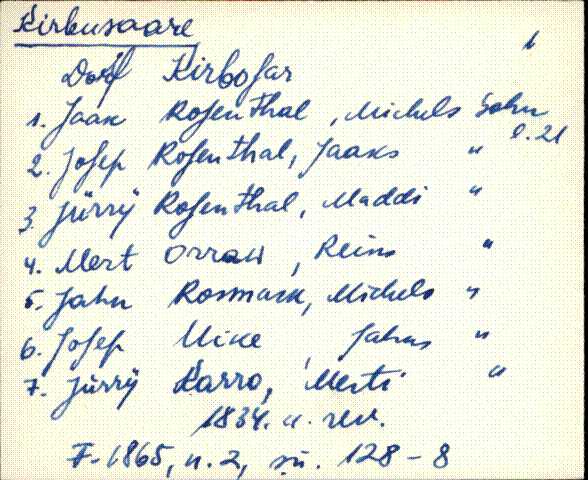 Kirbusaare
1
Dorf Kirbosar
1. Jaak Rosenthal, Michels Sohn
l. 21
2. Josep Rosenthal, Jaaks "
3. Jürrÿ Rosenthal, Maddi "
4. Mert Orraw, Reins "
5. Jahn Rosmann, Michels "
6. Josep Mike Jahns "
7. Jürrÿ Karro, Merti "
1834. a. rev.
F. 1865, n. 2, sü. 128-8